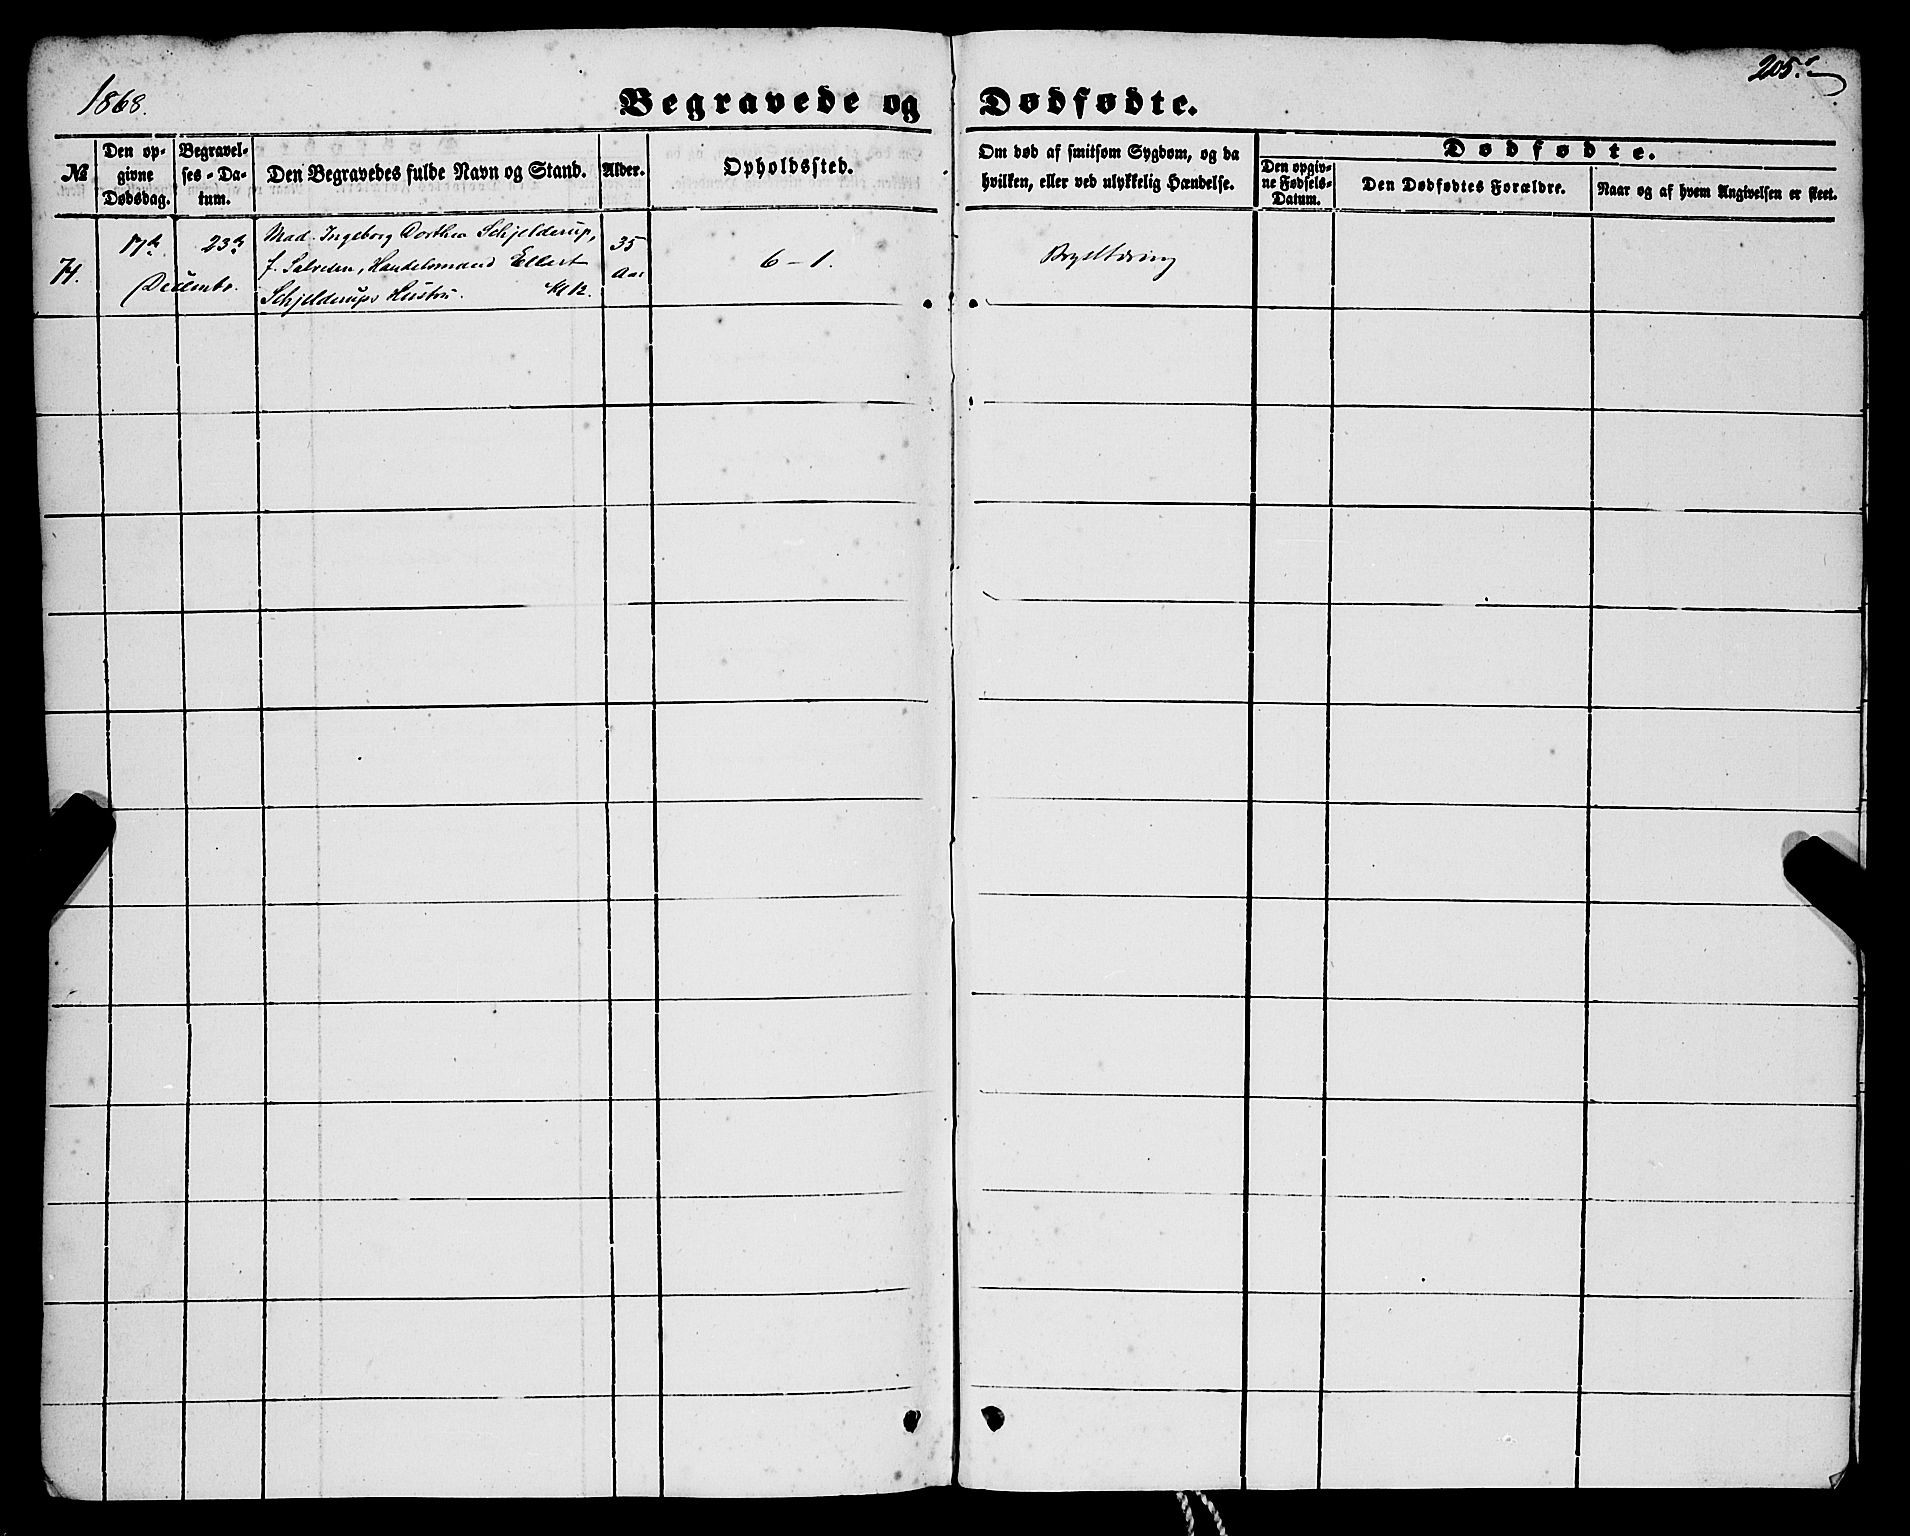 1868.
205.
Begravede og Dødfødte.
№
Den op-
givne
Dødsdag.
Begravel-
ses-Da-
tum.
Den Begravedes fulde Navn og Stand.
Alder.
Opholdssted.
Om død af smitsom Sygdom, og da
hvilken, eller ved ulykkelig Hændelse.
Dødfødte.
Den opgiv-
ne Fødsels-
Datum.
Den Dødfødtes Forældre.
Naar og af hvem Angivelsen er skeet.
74.
17de
23de
December
Mad. Ingeborg Dorthea Schjelderup,
f. Salvesen, Handelsmand Ellert
Schjelderups Hustru. Kl 12.
35
Aar
6-1.
Brysttæring